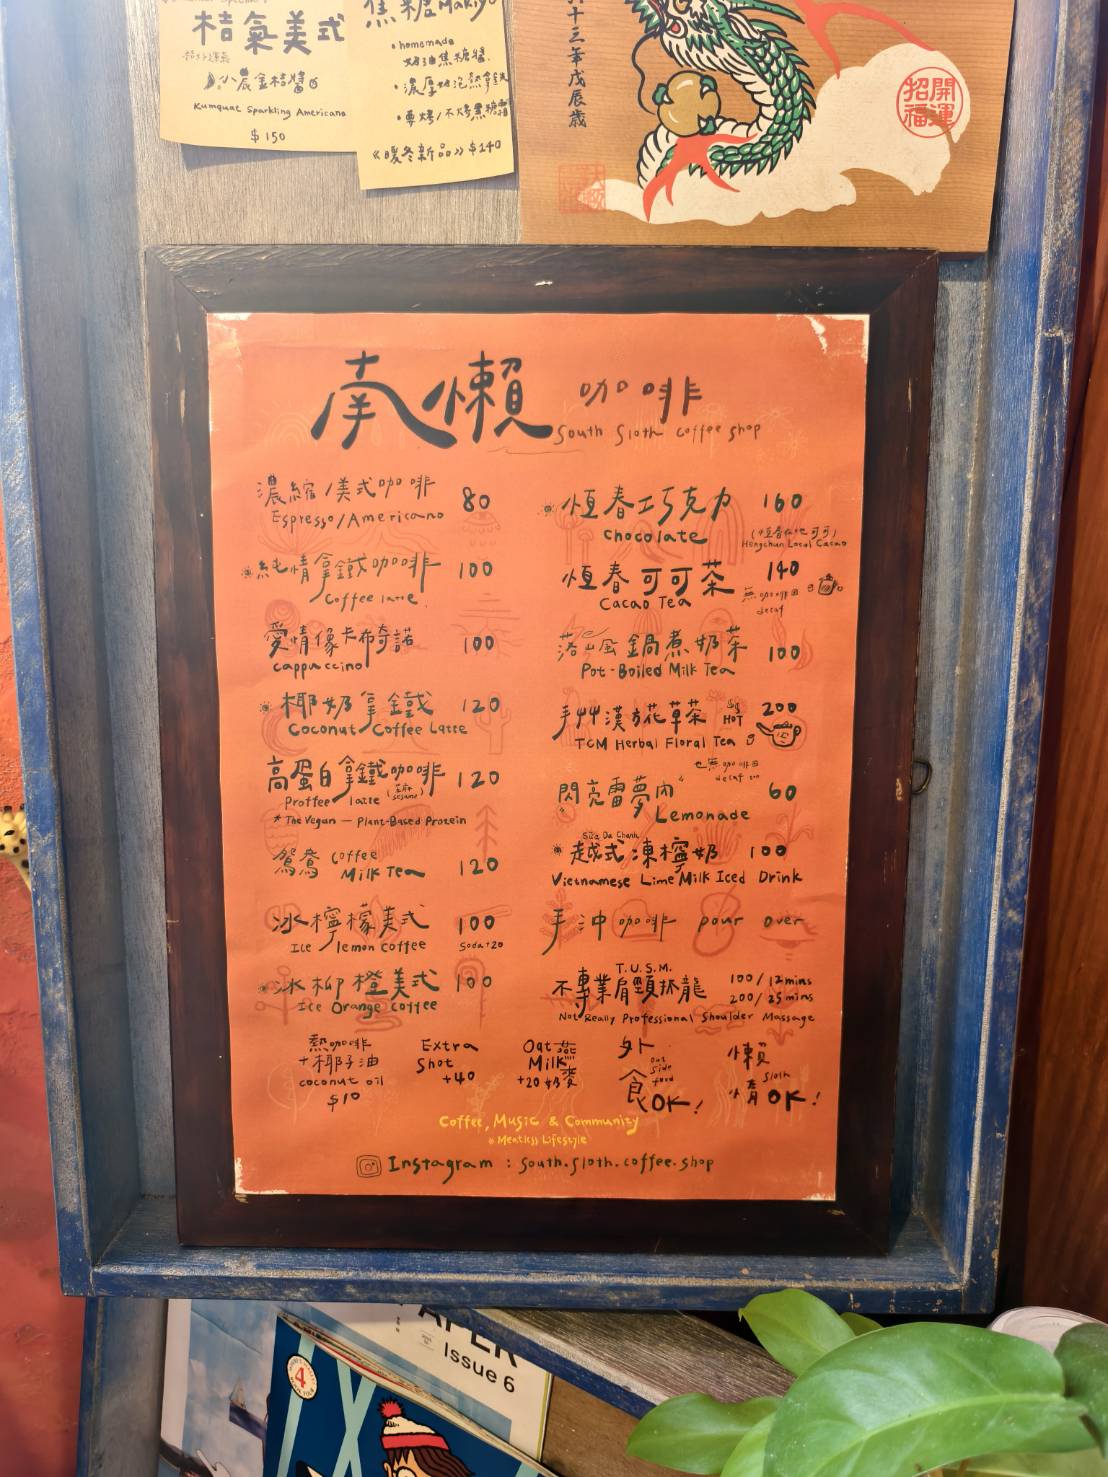 桔氣美式
小農金桔醬
Kumquat Sparkling Americano
$150
焦糖Makiyo
•homemade
奶油焦糖醬.
•濃厚奶泡熱拿鐵
•要烤/不烤焦糖霜
《暖冬新品》$140
十三年戊辰歲
開運招福
南懶 咖啡
South Sloth coffee shop
濃縮/美式咖啡 80
Espresso/Americano
純情拿鐵咖啡 100
Coffee latte
愛情像卡布奇諾 100
cappuccino
椰奶拿鐵 120
Coconut Coffee Latte
高蛋白拿鐵咖啡 120
Proffee latte (芝麻 sesame)
*The Vegan — Plant-Based Protein
鴛鴦 Coffee Milk Tea 120
冰檸檬美式 100
Ice lemon coffee Soda+20
冰柳橙美式 100
Ice Orange coffee
恆春巧克力 160
chocolate
Hengchun Local Cacao
恆春可可茶 140
Cacao Tea
無咖啡因
decaf
落山風鍋煮奶茶 100
Pot-Boiled Milk Tea
漢方花草茶 HOT 200
TCM Herbal Floral Tea
也無咖啡因
閃亮雷夢內 60
Lemonade
Sữa Đá Chanh
越式凍檸奶 100
Vietnamese Lime Milk Iced Drink
手沖咖啡 pour over
T.U.S.M.
不專業肩頸抓龍 100/12mins
200/25mins
Not Really Professional Shoulder Massage
熱咖啡
+椰子油
coconut oil
$10
Extra
Shot
+40
Oat 燕
Milk 麥
+20 奶
外
食 outside food OK!
懶
惰 Sloth OK!
Coffee, Music & Community
Meatless Lifestyle
Instagram : south.sloth.coffee.shop
APER
Issue 6
4